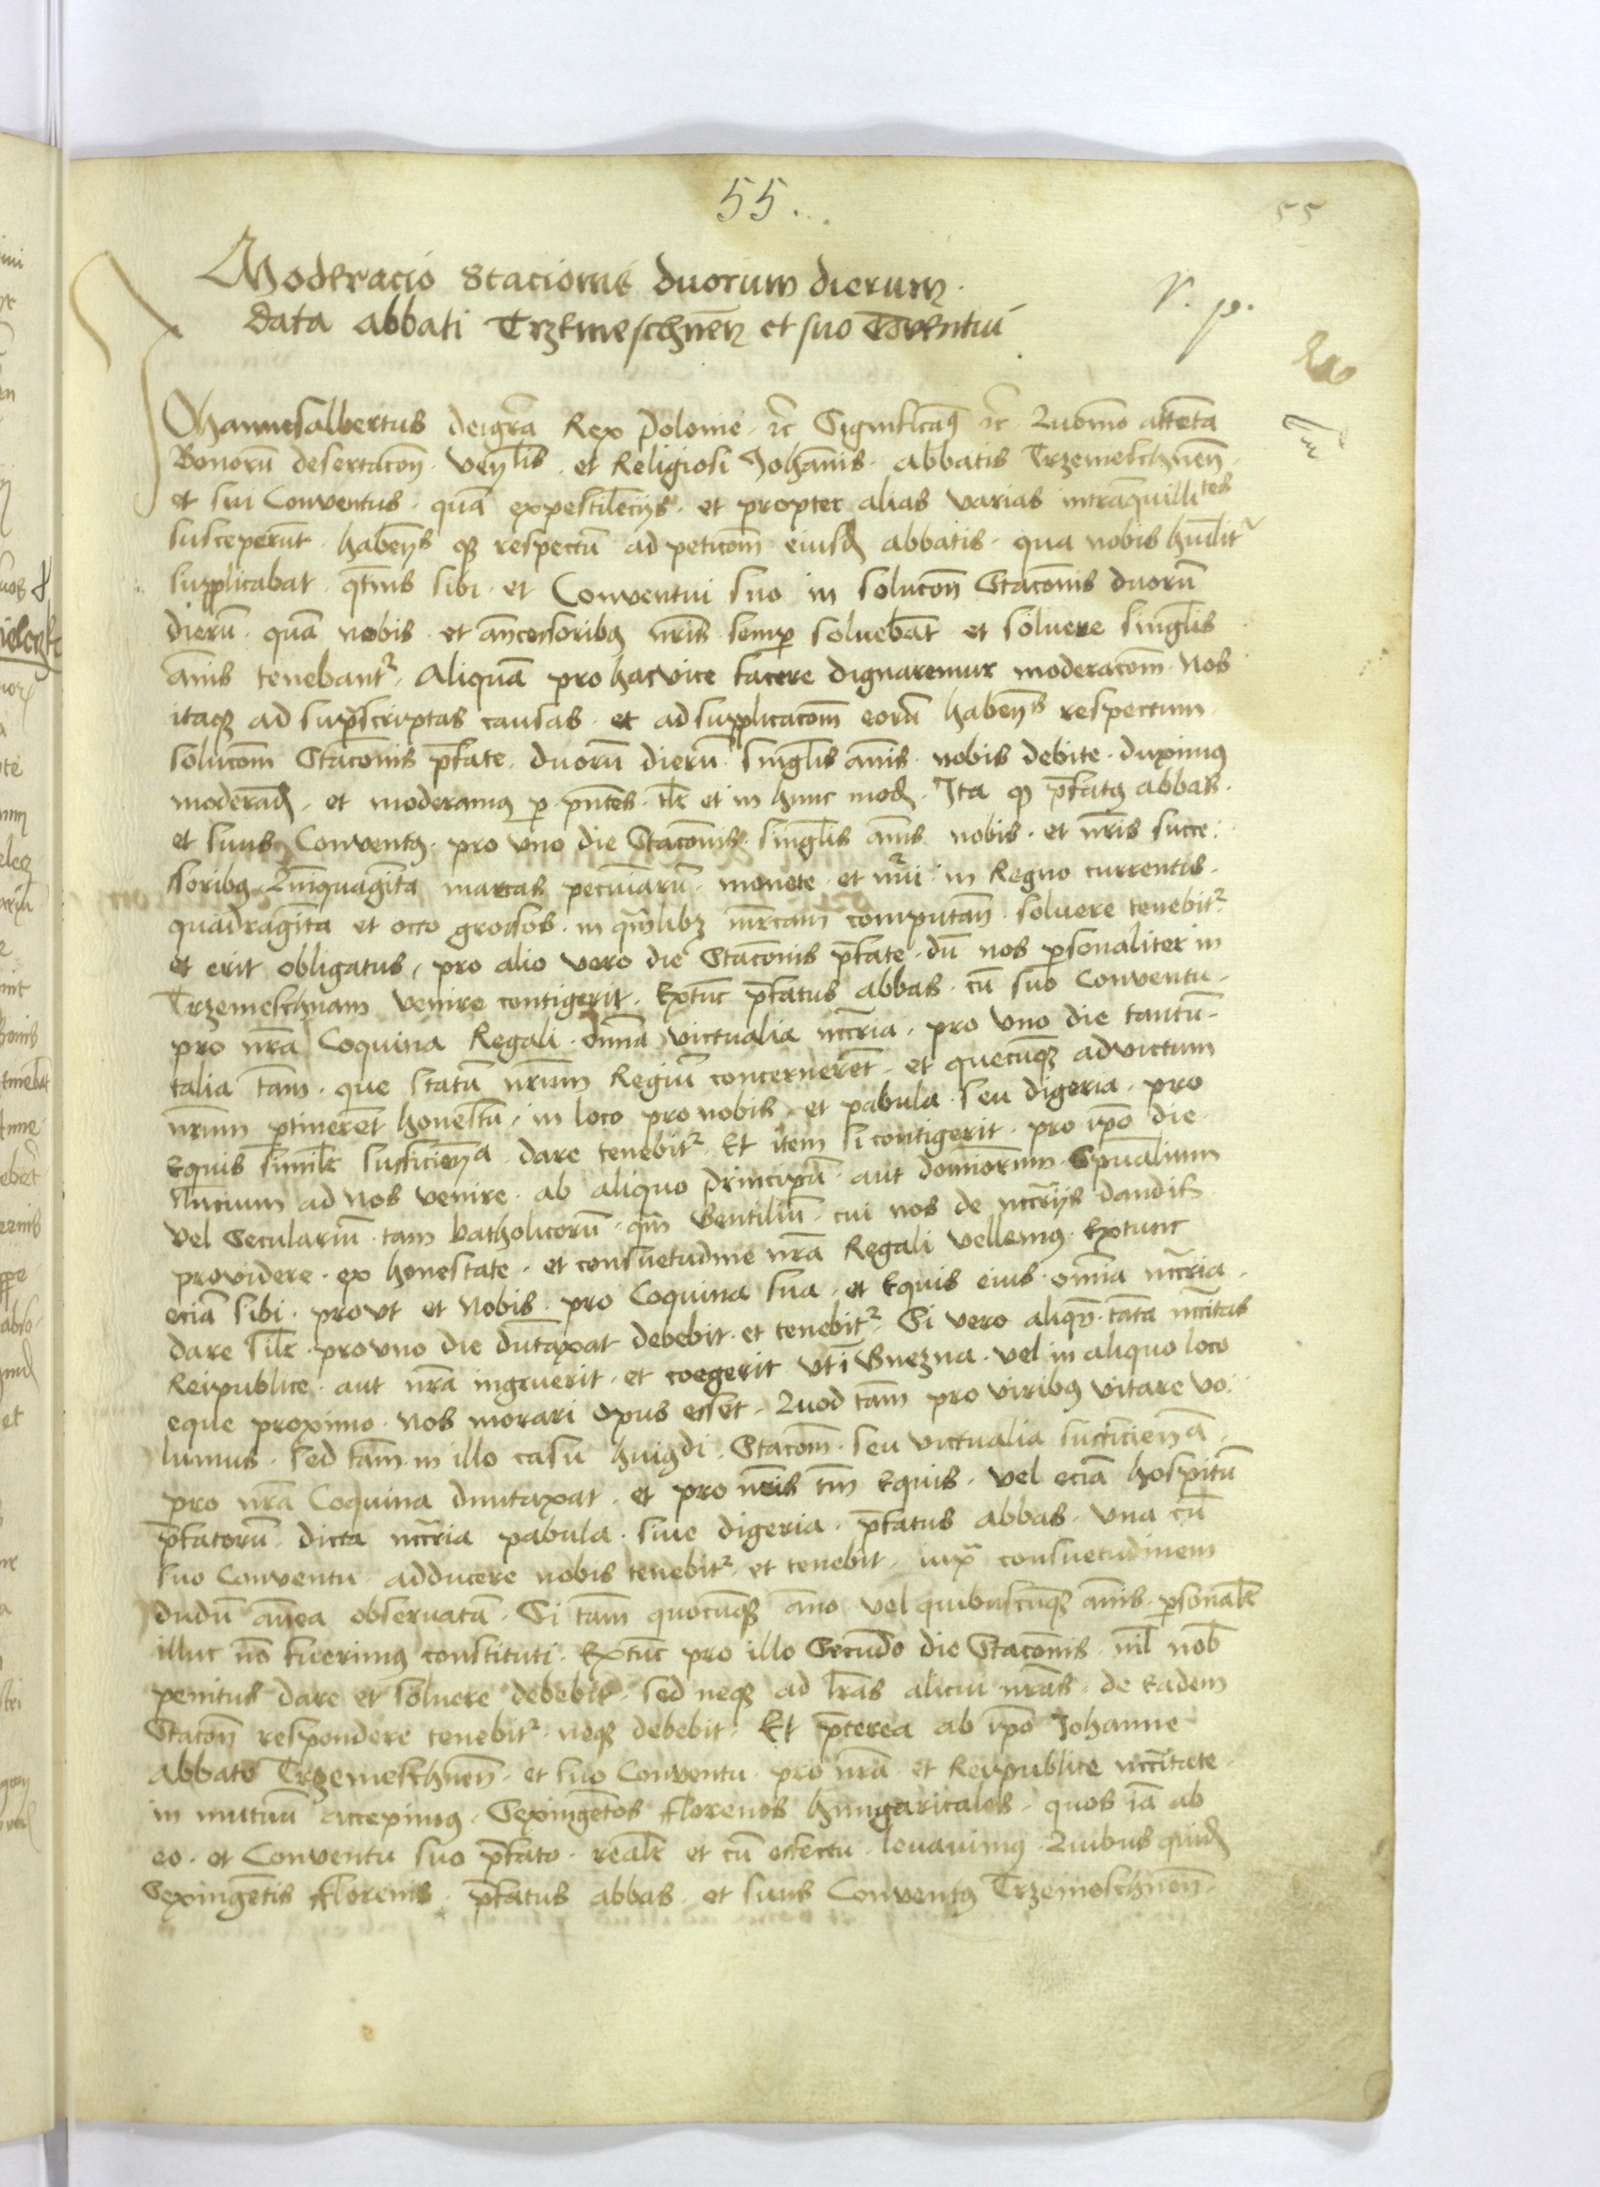 55.
55
Moderacio Stacionis duorum dierum
data abbati Trzemeschnen̄ et suo Co̅ventui
V. p.
Johannesalbertus dei gr̅a Rex Polonie etc̅ Significam⁹ etc̅ Quomo̅ atten̅ta
Bonoru̅ desertaco̅n̅ · Ven̅lis · et Religiosi Joha̅nis · abbatis Trzemeschnen̅
et sui Conventus · qua̅ ex pestile̅cijs · et propter alias varias intra̅quillites
susceperu̅t · haben̅s qꝫ respectu̅ ad peticom̅ eiusd̅ abbatis · qua nobis hu̅ilit̉
supplicabat · qt̅nus sibi · et Conventui suo in solucon̅ Staco̅nis duoru̅
dieru̅ · qua̅ nobis · et an̅cessoribꝫ nr̅is semp̱ solueba̅t et soluere sing̅lis
an̅is tenebantᷣ · Aliqua̅ pro hac vice facere dignaremur moderacom̅ · Nos
itaqꝫ ad sup̅scriptas causas · et ad supplicacom̅ eoru̅ haben̅s respectum
solucom̅ Staco̅nis p̅fate · duoru̅ dieru̅ · sing̅lis an̅is · nobis debite · duximꝰ
moderan̅d̅ · et moderamꝰ p̱ pn̅tes · tl̅r et in hunc mod̅ · Ita qꝫ p̅fatꝰ abbas ·
et suus Conventꝰ · pro vno die Staco̅nis · sing̅lis an̅is nobis · et nr̅is succe
ssoribꝫ Qui̅nquagin̅ta marcas pecu̅iaru̅ · monete · et nu̅i · in Regno currentis ·
quadragin̅ta et octo grossos · in qua̅libꝫ mr̅cam computan̅ · soluere tenebitᷣ
et erit obligatus / pro alio vero die Staco̅nis p̅fate · du̅ nos p̱sonaliter in
Trzemeschnam venire contigerit · Extu̅c p̅fatus abbas · cu̅ suo Conventu ·
pro nr̅a Coquina Regali · om̅ia victualia nc̅c̅ria · pro vno die tantu̅ ·
talia tam̅ · que statu̅ nr̅um Regiu̅ concernere̅t · et quecu̅qꝫ ad victum
nr̅um p̱tinere̅t honestu̅ · in loco pro nobis · et pabula · seu digeria · pro
Equis simil̅r sufficien̅a · dare tenebitᷣ · Et item si contigerit · pro ip̅o die
Nu̅cium ad nos venire · ab aliquo principu̅ · aut domi̅orum Sp̅ualium
vel Seculariu̅ · tam katholicoru̅ · qm̅ Gentiliu̅ · cui nos de nc̅c̅rijs dandis
providere · ex honestate · et consuetudine nr̅a Regali vellemꝰ · Extunc
ecia̅ sibi · provt et Nobis · pro Coquina sua · et Equis eius · om̅ia nc̅c̅ria ·
dare sil̅r · pro vno die du̅taxat debebit · et tenebitᷣ · Si vero aliqn̅ · tan̅ta nc̅c̅itas
Reipublice · aut nr̅a ingruerit · et coegerit vti̅ Gnezna · vel in aliquo loco
eque proximo · Nos morari opus esset · Quod tam̅ pro viribꝰ vitare vo
lumus · Sed tam̅ in illo casu hui⁹di · Stacom̅ · seu victualia sufficien̅a ·
pro nr̅a Coquina dmutaxat · et pro nr̅is tm̅ Equis · vel ecia̅ hospitu̅
p̅fatoru̅ · dicta nc̅c̅ria pabula · siue digeria · p̅fatus abbas · vna cu̅
suo Conventu adducere nobis tenebitᷣ · et tenebit · iuxa̅ consuetudinem
dudu̅ an̅ea obseruata̅ · Si tam̅ quocu̅qꝫ an̅o vel quibuscu̅qꝫ an̅is · p̱sonal̅r
illuc no̅ fuerimꝰ constituti · Extu̅c pro illo Secu̅do die Staco̅nis · nil̅ nob̅
penitus dare et soluere debebit · sed neqꝫ ad lr̅as alicui nr̅as · de Eadem
Stacon̅ respondere tenebitᷣ · neqꝫ debebit · Et p̅terea ab ip̅o Johanne
abbate Trzemeschnen̅ · et suo Conventu · pro nr̅a et Reipublice nc̅c̅itate ·
in mutuu̅ accepimꝰ · Sexingen̅tos florenos hungaricales · quos ia̅ ab
eo · et Conventu suo p̅fato · real̅r et cu̅ effectu · leuauimꝰ · Quibus quid̅
Sexingen̅tis florenis · p̅fatus abbas · et suus Conventꝰ Trzemeschnen̅ ·